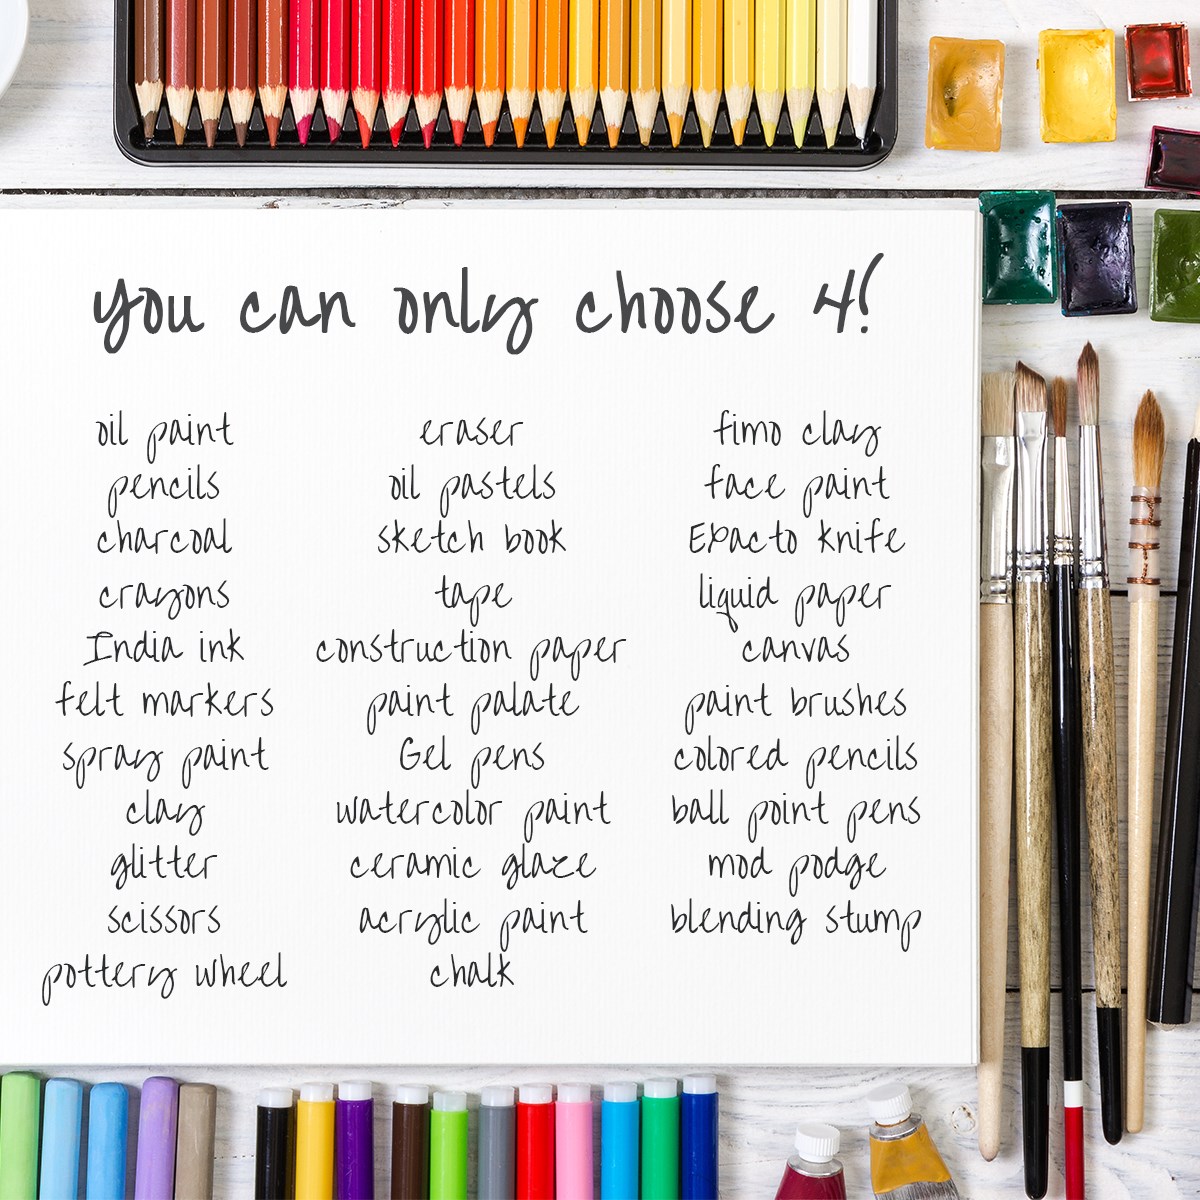 you can only choose 4!
oil paint
pencils
charcoal
crayons
India ink
felt markers
spray paint
clay
glitter
scissors
pottery wheel
eraser
oil pastels
sketch book
tape
construction paper
paint palate
Gel pens
watercolor paint
ceramic glaze
acrylic paint
chalk
fimo clay
face paint
EXacto knife
liquid paper
canvas
paint brushes
colored pencils
ball point pens
mod podge
blending stump